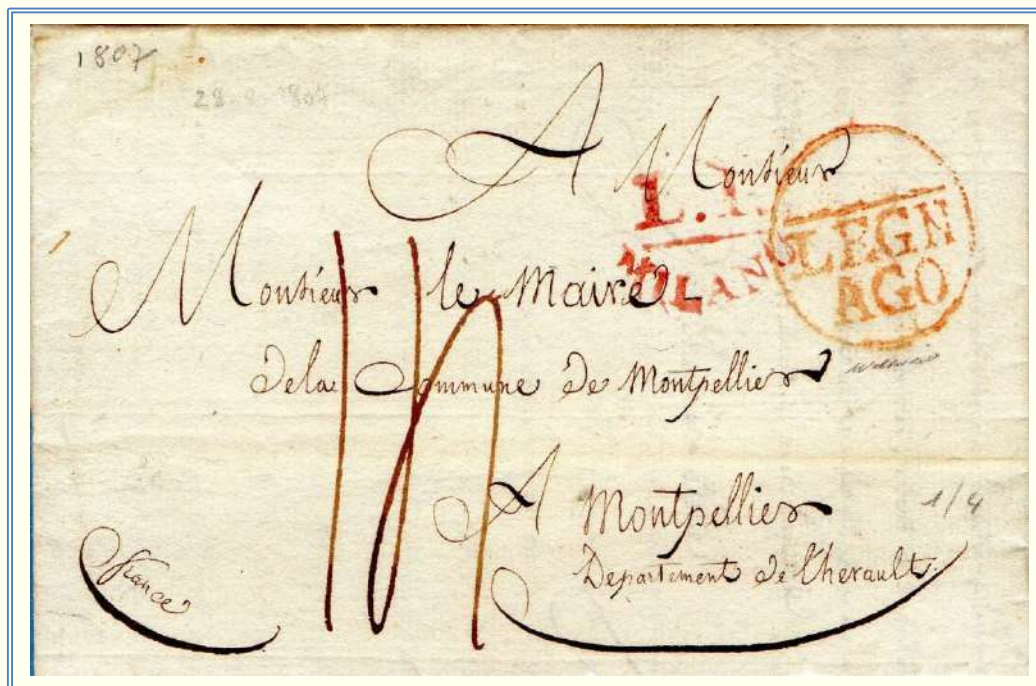 1807
1807
A Monsieur
L.I.
MILANO
LEGN
AGO
Monsieur le Maire
de la Commune de Montpellier
A Montpellier
1/4
Departement de l'herault.
france